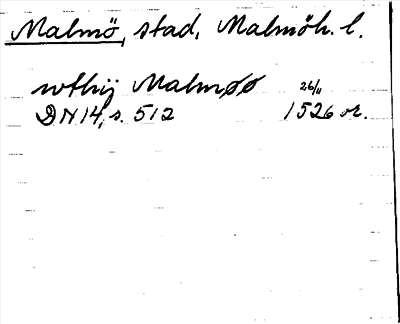 Malmö, stad, Malmöh. l.
wthij Malmøø 26/11
DN 14, s. 512 1526 or.